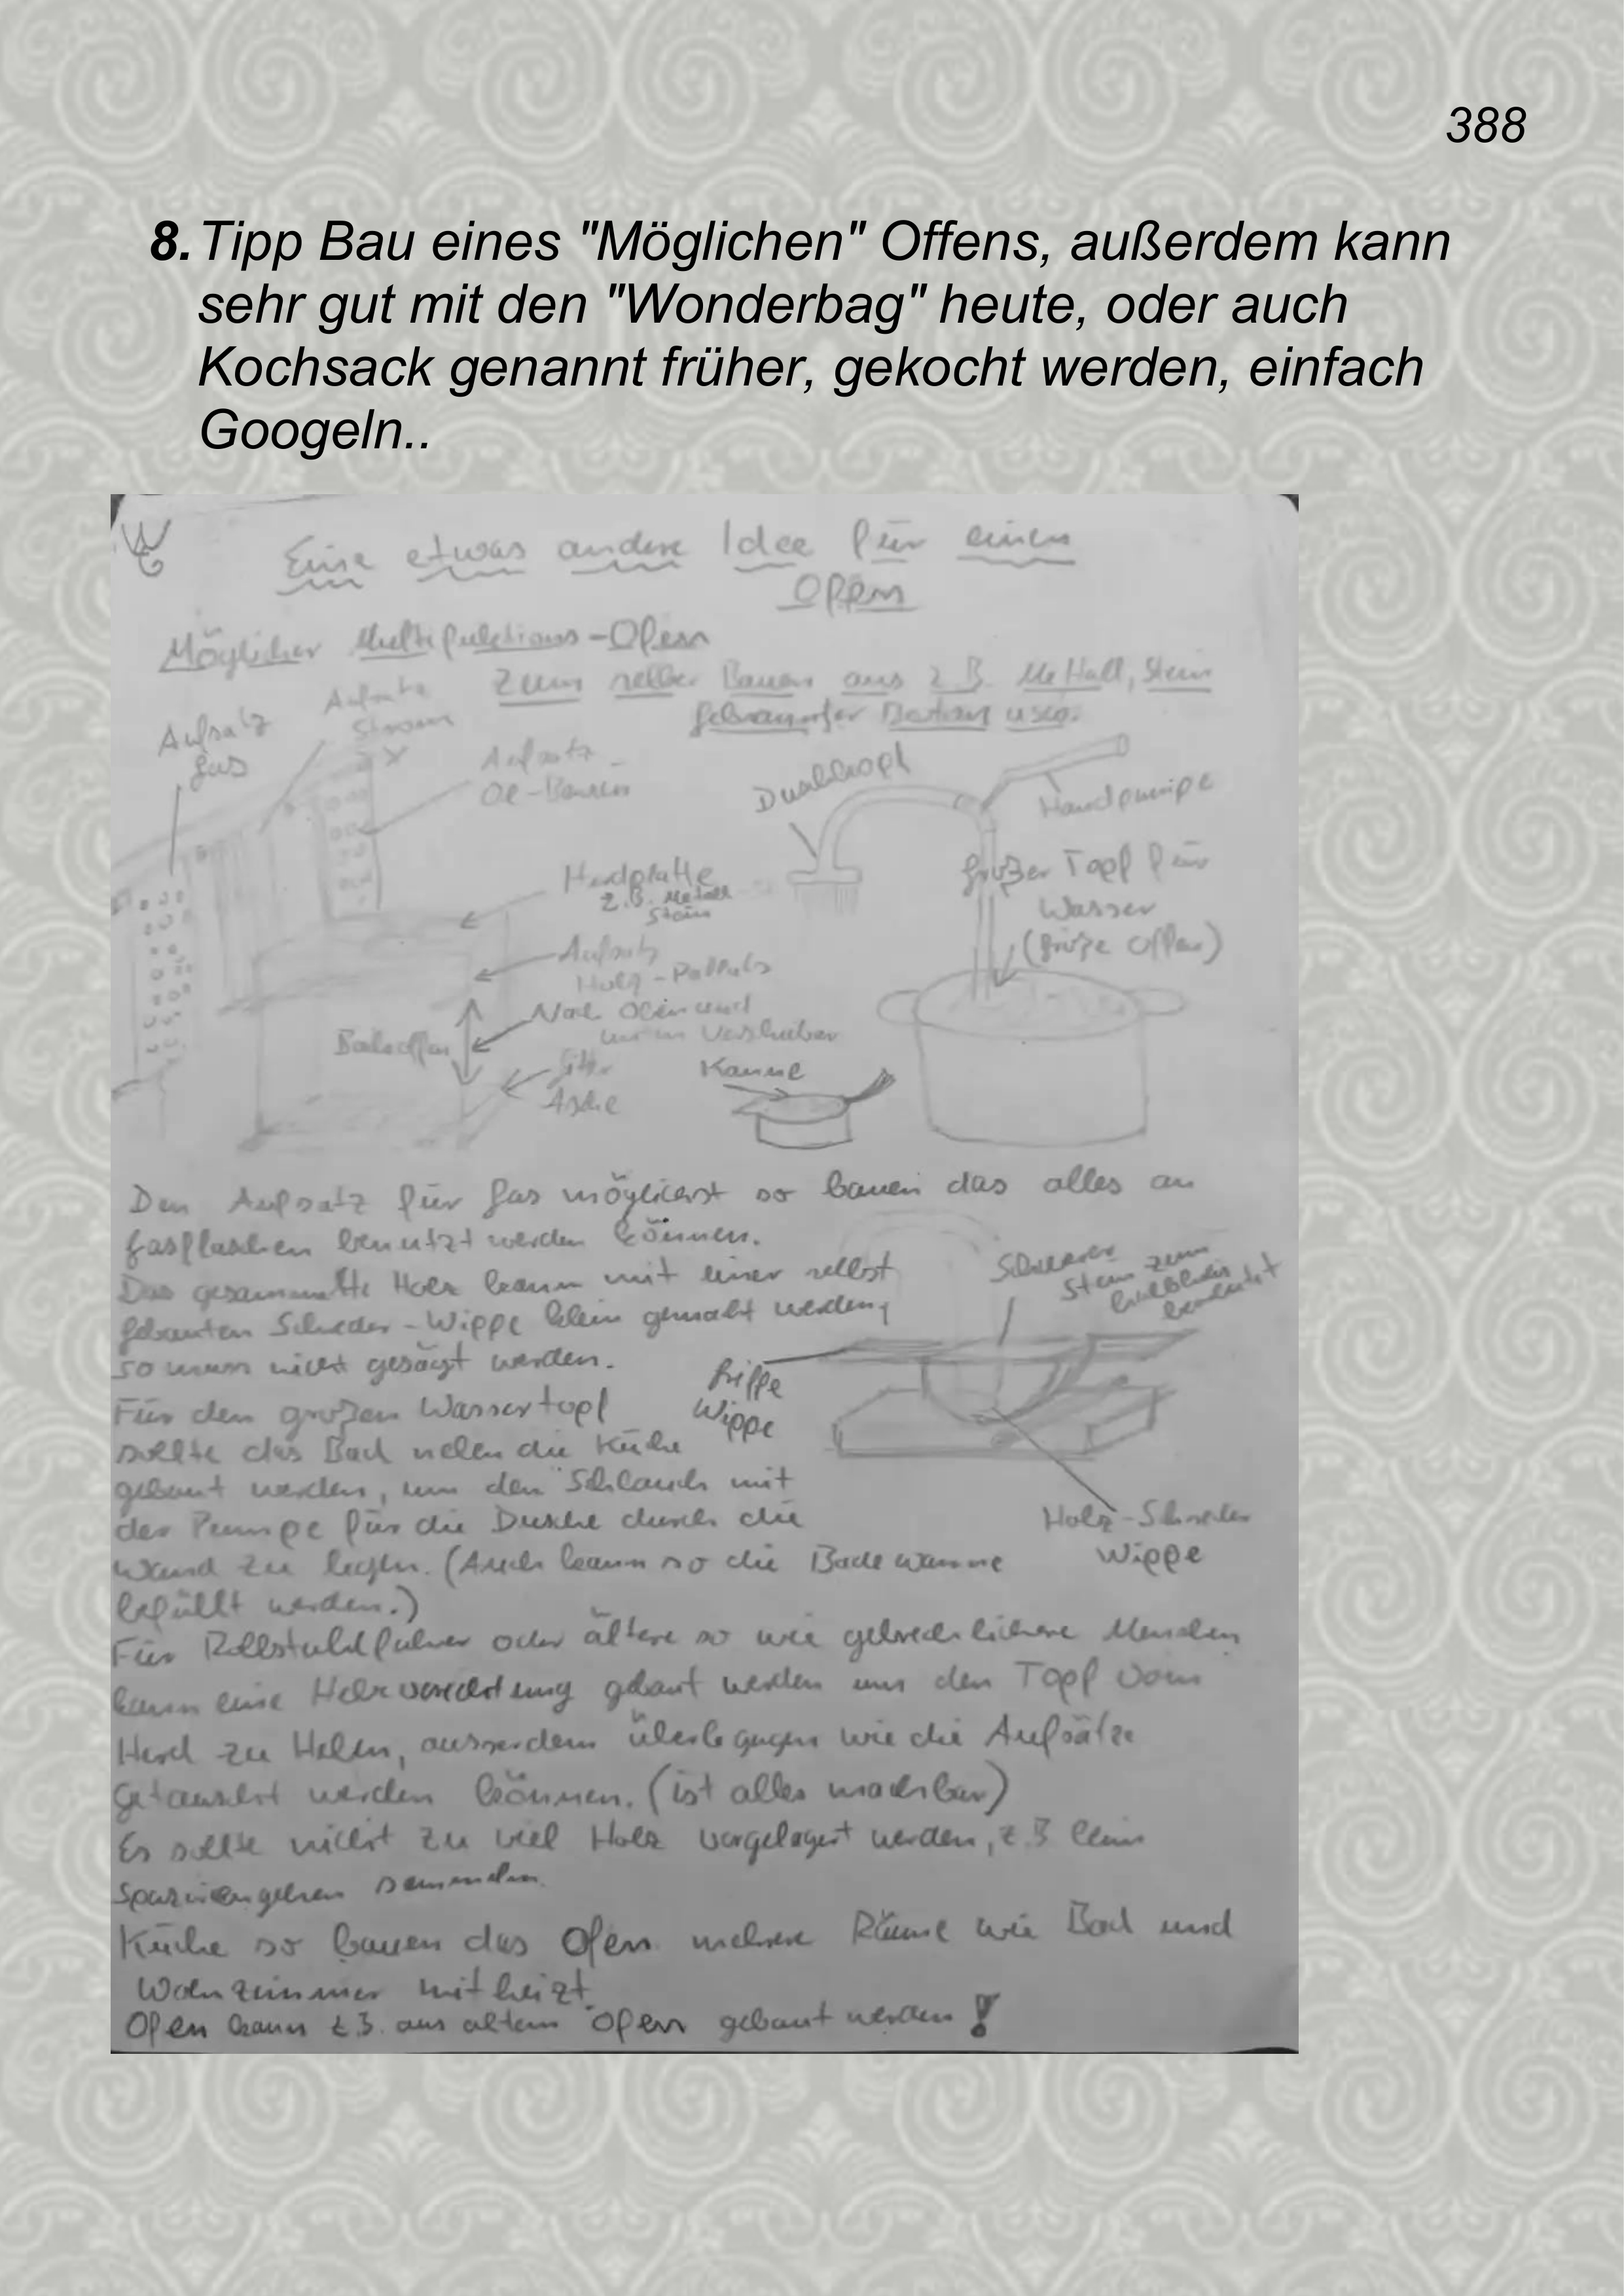 388
8. Tipp Bau eines "Möglichen" Offens, außerdem kann
sehr gut mit den "Wonderbag" heute, oder auch
Kochsack genannt früher, gekocht werden, einfach
Googeln..
Eine etwas andere Idee für einen
Ofen
Möglicher Multifunktions-Ofen
zum selber Bauen aus z.B. Metall, Stein
gebrannter usw.
Aufsatz
Gas
Aufsatz
Strom
Aufsatz
Duschkopf
Handpumpe
Herdplatte
z.B. Metall
Stein
großer Topf für
Wasser
(große Offen)
Aufsatz
Holz-Pellets
Nach Oben und
unten Verschieber
Backoffen
Gitter
Asche
Kanne
Den Aufsatz für Gas möglichst so bauen das alles an
Gasflaschen benutzt werden können.
Das gesammelte Holz kann mit einer selbst
gebauten Schreder-Wippe klein gemacht werden,
so muss nicht gesägt werden.
Schwerer
Stein zum
Griffe
Wippe
Für den großen Wassertopf
sollte das Bad neben die Küche
gebaut werden, um den Schlauch mit
der Pumpe für die Dusche durch die
Wand zu legen. (Auch kann so die Badewanne
befüllt werden.)
Holz-Schreder
Wippe
Für Rollstuhlfahrer oder ältere so wie gebrechlichere Menschen
kann eine Hebevorrichtung gebaut werden um den Topf vom
Herd zu Heben, ausserdem überlegugen wie die Aufsätze
getauscht werden können. (ist alles machbar)
Es sollte nicht zu viel Holz vorgelagert werden, z.B beim
Spazierengehen sammeln.
Küche so bauen das Ofen mehrere Räume wie Bad und
Wohnzimmer mitheizt.
Ofen kann z.B. aus altem Ofen gebaut werden!